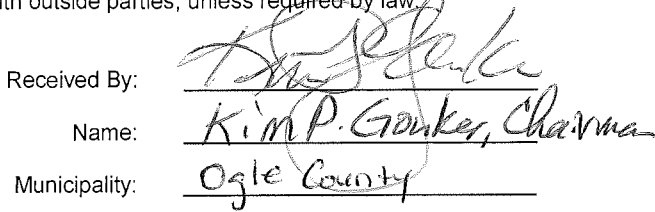 with outside parties, unless required by law.
Received By:
Name: Kim P. Gouker, Chairman
Municipality: Ogle County